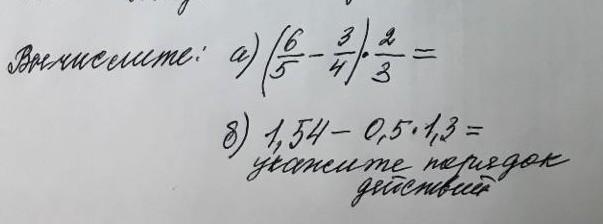 Вычислите: а) (6/5 - 3/4) · 2/3 =
б) 1,54 - 0,5 · 1,3 =
укажите порядок
действий